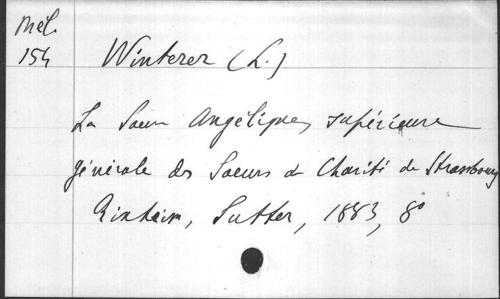 Mél.
154
Winterer (L.)
La Soeur Angélique, supérieure
générale des Soeurs de Charité de Strasbourg
Rixheim, Sutter, 1883, 8°